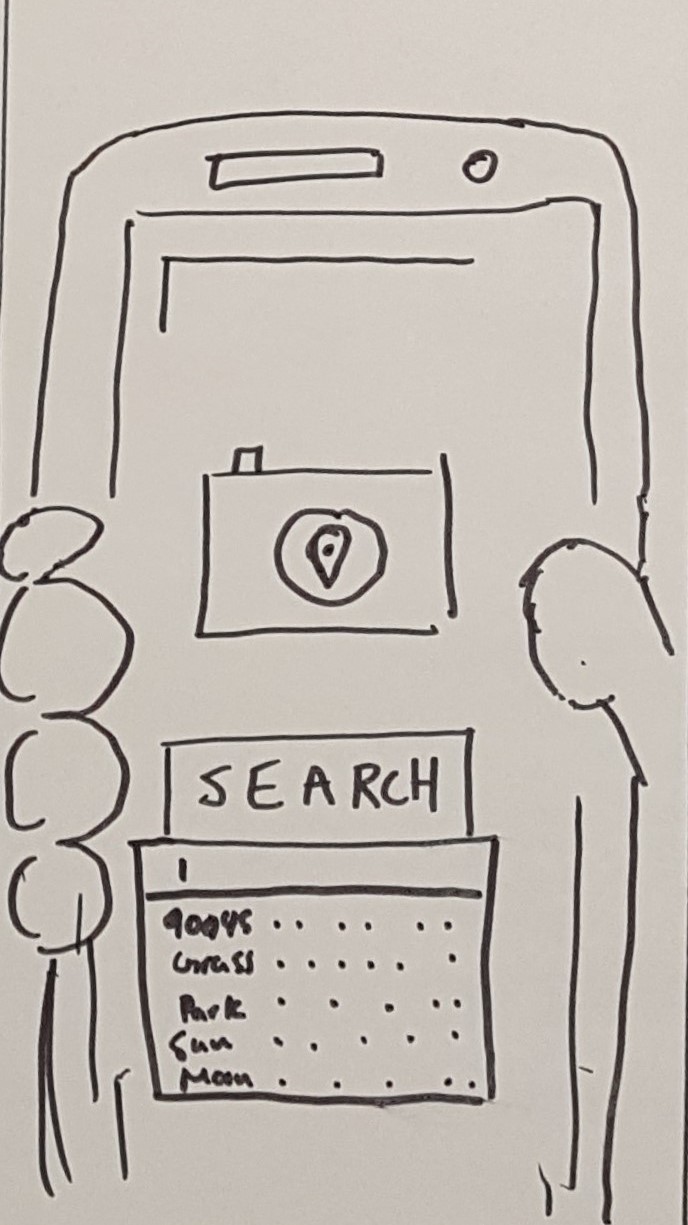 SEARCH
Grass
Park
Sun
Moon